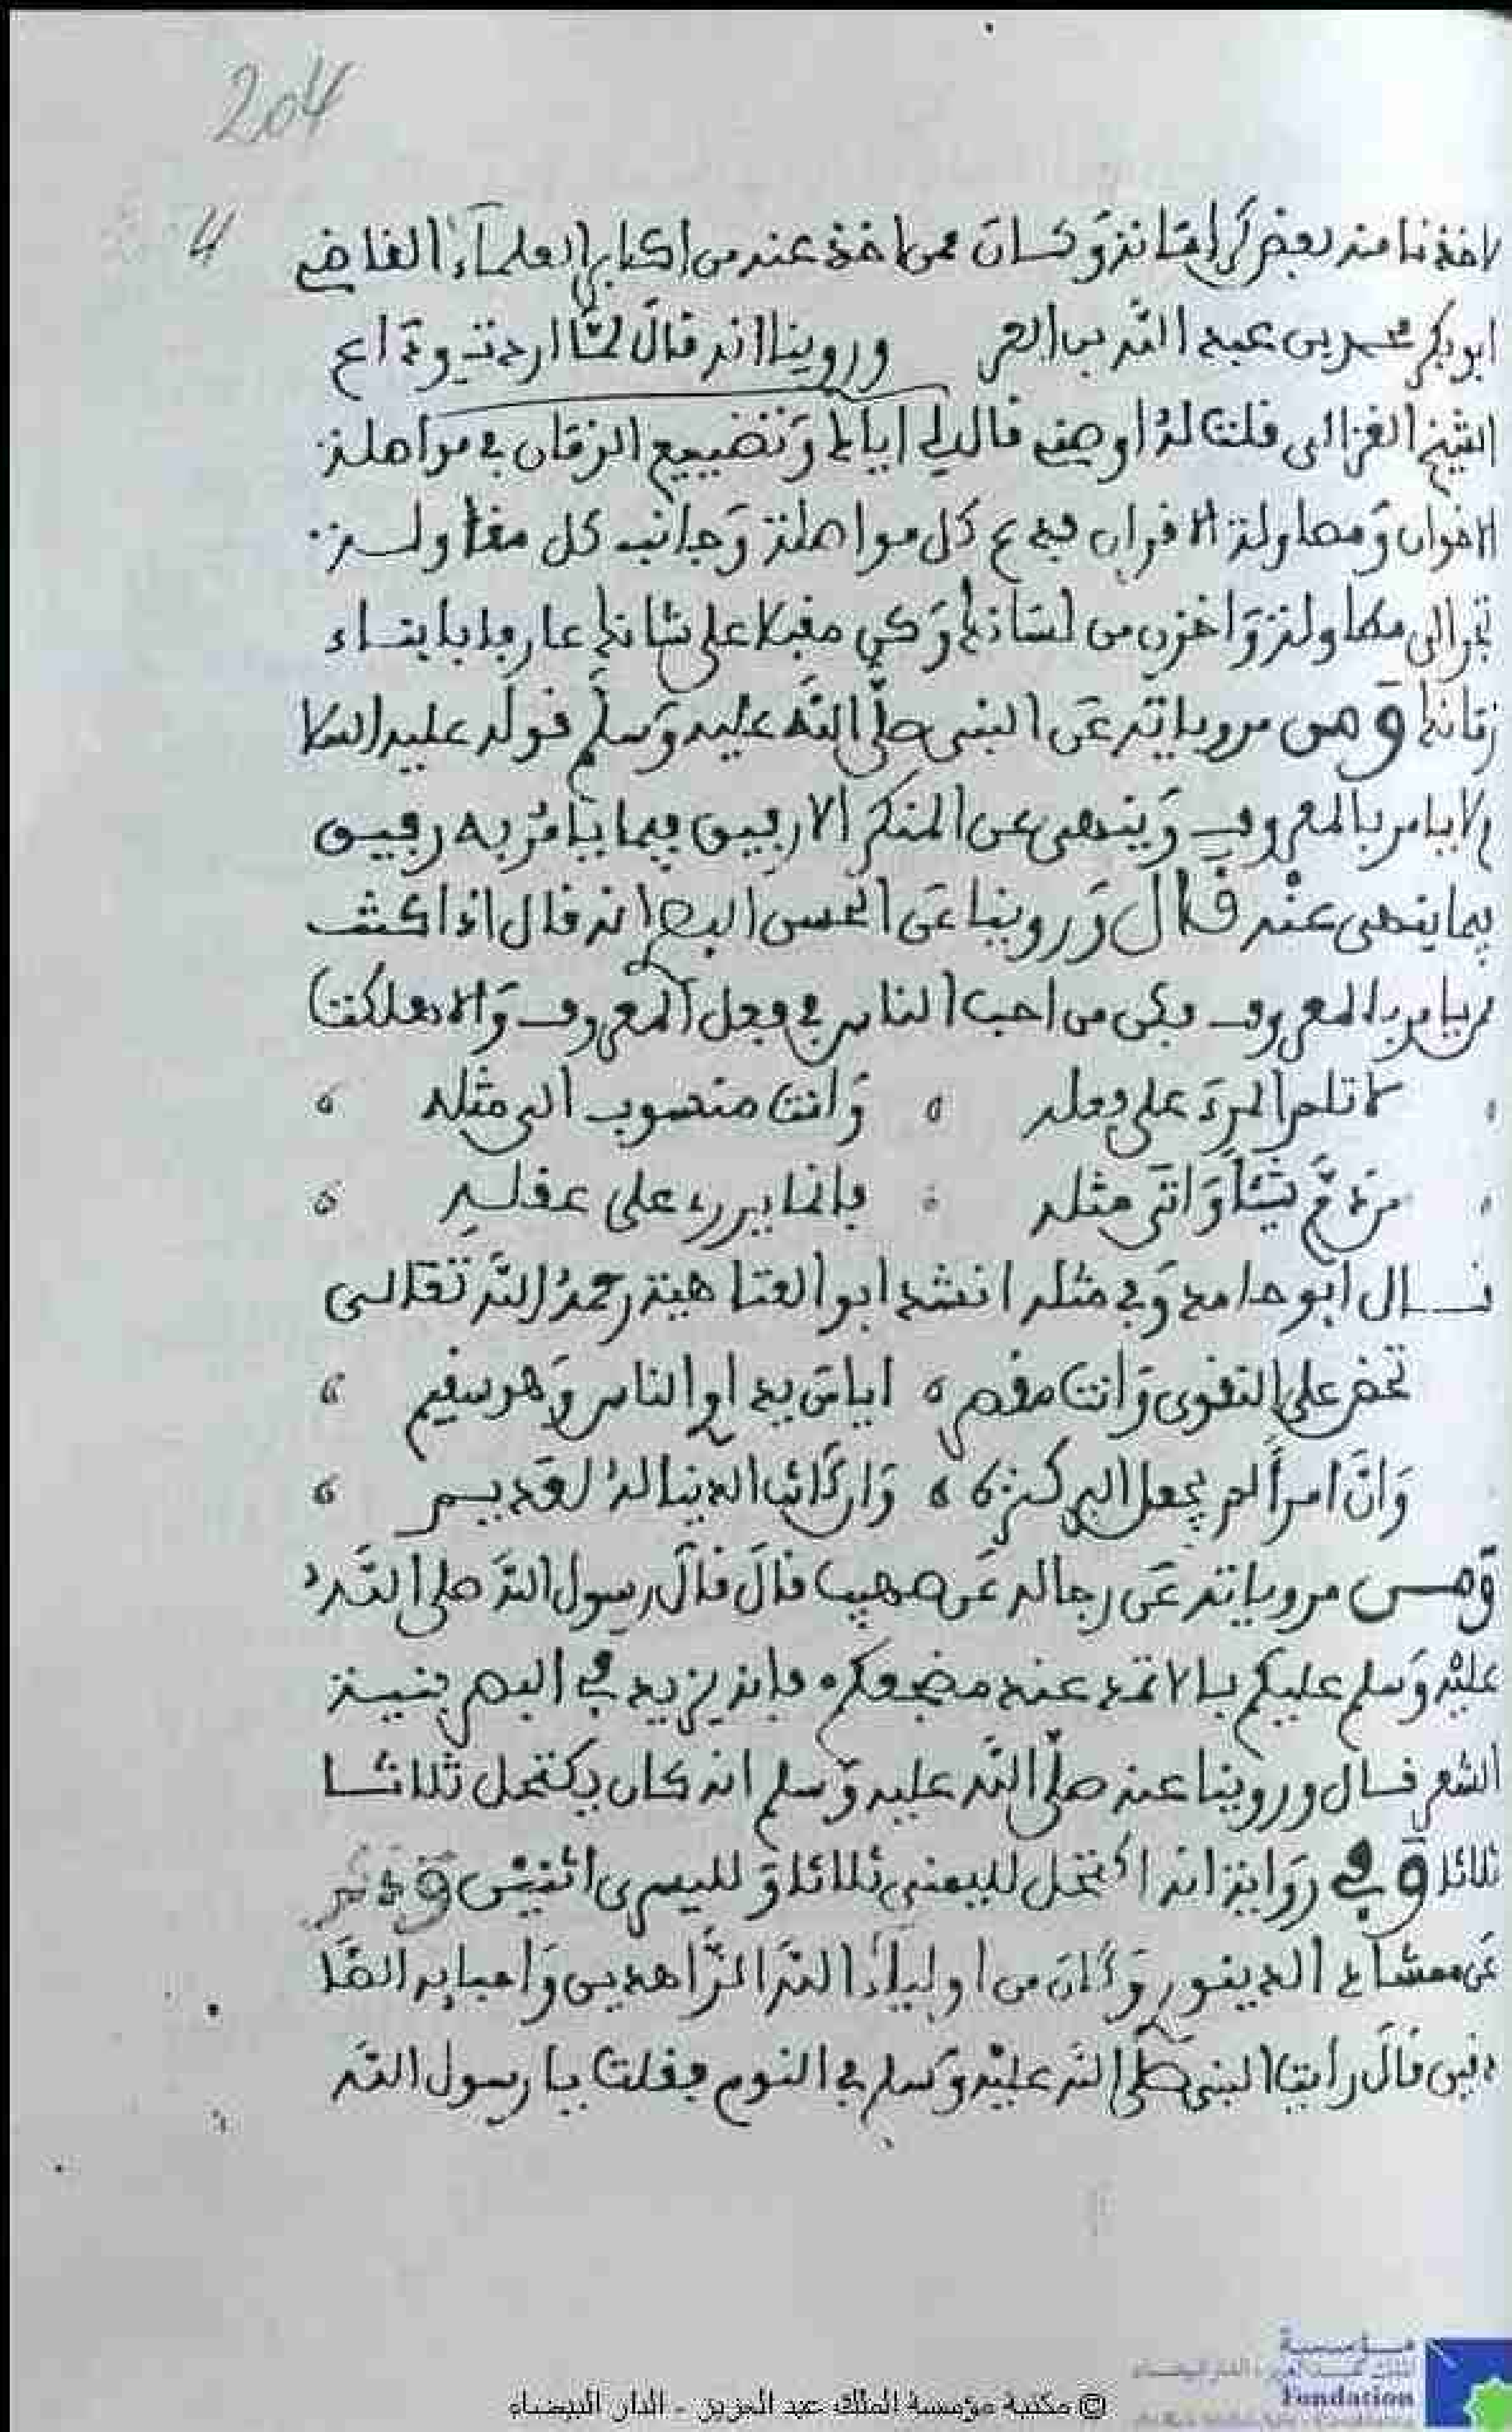 204
4
لاخذنا منه بعض كراماته وكان ممن اخذ عنه من اكابر العلماء القاضي
ابو بكر محمد بن عبد الله بن العر وروينا انه قال لمّا اردت وداع
الشيخ الغزالى قلت له اوصني فقال لي اياك وتضييع الزمان في مواصلة
الاخوان ومصاولة الاقران فدع كل مواصلة وجانب كل
الى من لسانك وكن مقبلا على شانك عارفا بابناء
زمانك ومن مروياته عن النبي صلى الله عليه وسلم قوله عليه السلا
م لا يامر بالمعروف وينهى عن المنكر الا رفيق فيما يامر به رفيق
فيما ينهى عنه قال وروينا عن الحسن البصري انه قال اذا كنت
ممن يامر بالمعروف فكن من احب الناس في فعل المعروف والا هلكت
لا تلم المرء على فعله وانت منسوب الى مثله
من ذمّ شيئا واتى مثله فانما يزرى على عقله
قال ابو حامد وفي مثله انشد ابو العتاهية رحمه الله تعالى
تحض على التقوى وانت مقصر ايا من يداوي الناس وهو سقيم
وانّ امرأ لم يجعل البر كنزه وان كانت الدنيا له لعديم
ومن مروياته عن رجاله عن صهيب قال قال رسول الله صلى الله
عليه وسلم عليكم بالاثمد عند مضجعكم فانه يزيد في البصر وينبت
الشعر قال وروينا عنه صلى الله عليه وسلم انه كان يكتحل ثلاثا
ثلاثا وفي رواية انه اكتحل لليمنى ثلاثا ولليسرى اثنين وذكر
عن ممشاد الدينوري وكان من اولياء الله الزاهدين واحبابه الصا
دقين قال رايت النبي صلى الله عليه وسلم في النوم فقلت يا رسول الله
© مكتبة مؤسسة الملك عبد العزيز - الدار البيضاء
مؤسسة
Fondation